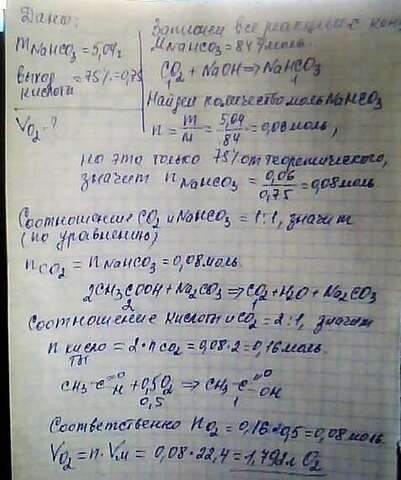 Дано:
mNaHCO3=5,04г
выход
кислоты =75%=0,75
VO2-?
Запишем все реакции с кон
MNaHCO3=84г/моль.
CO2+NaOH⇒NaHCO3
1 1
Найдем количество моль NaHCO3
n=m/M=5,04/84=0,06моль,
но это только 75% от теоретического,
значит nNaHCO3=0,06/0,75=0,08моль
Соотношение CO2 и NaHCO3=1:1, значит
(по уравнению)
nCO2=nNaHCO3=0,08моль.
2CH3COOH+Na2CO3⇒CO2+H2O+Na2CO3
2
Соотношение кислоты и CO2=2:1, значит
n кисло=2·nCO2=0,08·2=0,16моль.
ты
CH3-C=O H+0,5O2⇒CH3-C=O OH
0,5 1
Соответственно nO2=0,16·0,5=0,08моль.
VO2=n·Vм=0,08·22,4=1,792л O2